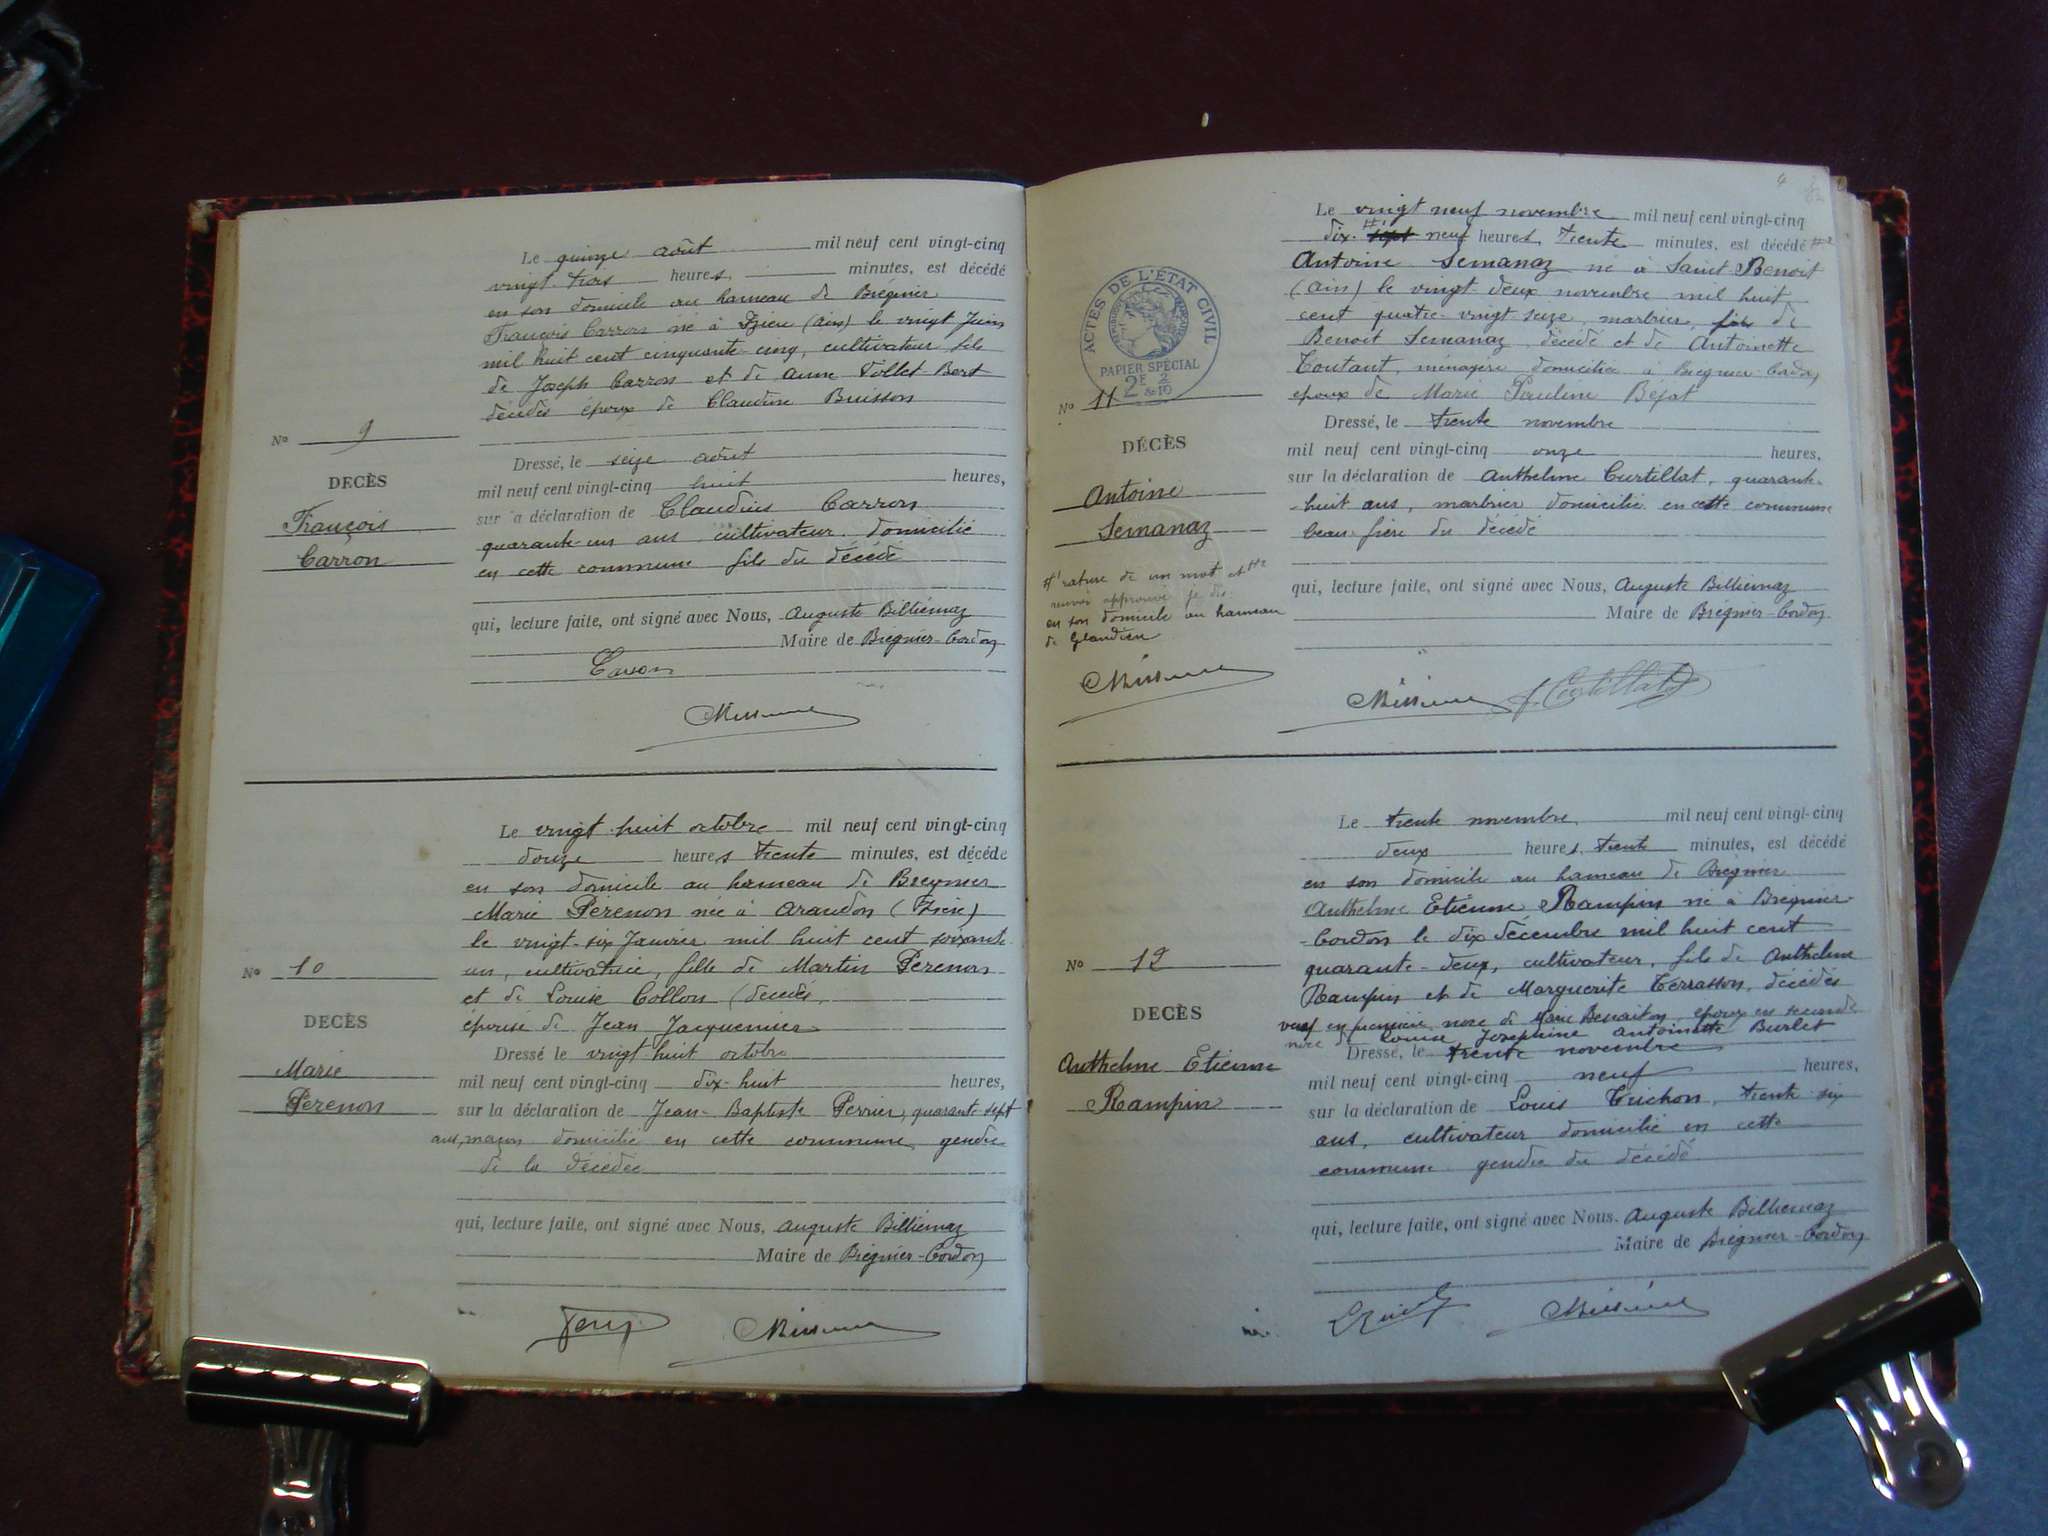 Le quinze août mil neuf cent vingt-cinq
vingt-trois heures minutes, est décédé
en son domicile au hameau de Bregnier
François Carron né à Izieu (Ain) le vingt Juin
mil huit cent cinquante-cinq, cultivateur fils
de Joseph Carron et de Anne Vollet Bert
décédés époux de Claudine Buisson
No 9
DECÈS
François
Carron
Dressé, le seize août
mil neuf cent vingt-cinq huit heures,
sur a déclaration de Claudius Carron
quarante-un ans, cultivateur domicilié
en cette commune fils du décédé
qui, lecture faite, ont signé avec Nous, Auguste Billiémaz
Maire de Bregnier-Cordon
Carron
Le vingt-huit octobre mil neuf cent vingt-cinq
douze heures trente minutes, est décédé
en son domicile au hameau de Bregnier
Marie Perenon née à Arandon (Isère)
le vingt-six Janvier mil huit cent soixante
un, cultivatrice, fille de Martin Perenon
et de Louise Collon (décédés,
épouse de Jean Jacquemier
No 10
DECÈS
Marie
Perenon
Dressé le vingt-huit octobre
mil neuf cent vingt-cinq dix-huit heures,
sur la déclaration de Jean-Baptiste Perrier, quarante sept
ans, maçon domicilié en cette commune, gendre
de la décédée
qui, lecture faite, ont signé avec Nous, Auguste Billiémaz
Maire de Brégnier-Cordon
4
Le vingt neuf novembre mil neuf cent vingt-cinq
dix-sept neuf heures, trente minutes, est décédé #2
Antoine Semanaz né à Saint-Benoit
(Ain) le vingt-deux novembre mil huit
cent quatre-vingt-seize, marbrier, fils de
Benoit Semanaz, décédé et de Antoinette
Toutant, ménagère domiciliée à Bregnier-Cordon,
époux de Marie Pauline Béjat
ACTES DE L'ÉTAT CIVIL
PAPIER SPÉCIAL
2E 2/10
No 11
DÉCÈS
Antoine
Semanaz
#1 rature de un mot et #2
renvoi approuvé je dis
en son domicile au hameau
de Glandieu
Dressé, le trente novembre
mil neuf cent vingt-cinq onze heures,
sur la déclaration de Anthelme Curtillat, quarante-
-huit ans, marbrier domicilié en cette commune
beau-frère du décédé
qui, lecture faite, ont signé avec Nous, Auguste Billiémaz
Maire de Brégnier-Cordon
Curtillat
Le trente novembre mil neuf cent vingt-cinq
deux heures, trente minutes, est décédé
en son domicile au hameau de Brégnier
Anthelme Etienne Rampin né à Bregnier-
-Cordon le dix décembre mil huit cent
quarante-deux, cultivateur, fils de Anthelme
Rampin et de Marguerite Terrasson, décédés
veuf en première noce de Marie Benaiton, époux en seconde
noce de Louise Josephine Antoinette Burlet
No 12
DECÈS
Anthelme Etienne
Rampin
Dressé, le trente novembre
mil neuf cent vingt-cinq neuf heures,
sur la déclaration de Louis Trichon, trente six
ans, cultivateur domicilié en cette
commune gendre du décédé
qui, lecture faite, ont signé avec Nous. Auguste Billiémaz
Maire de Brégnier-Cordon